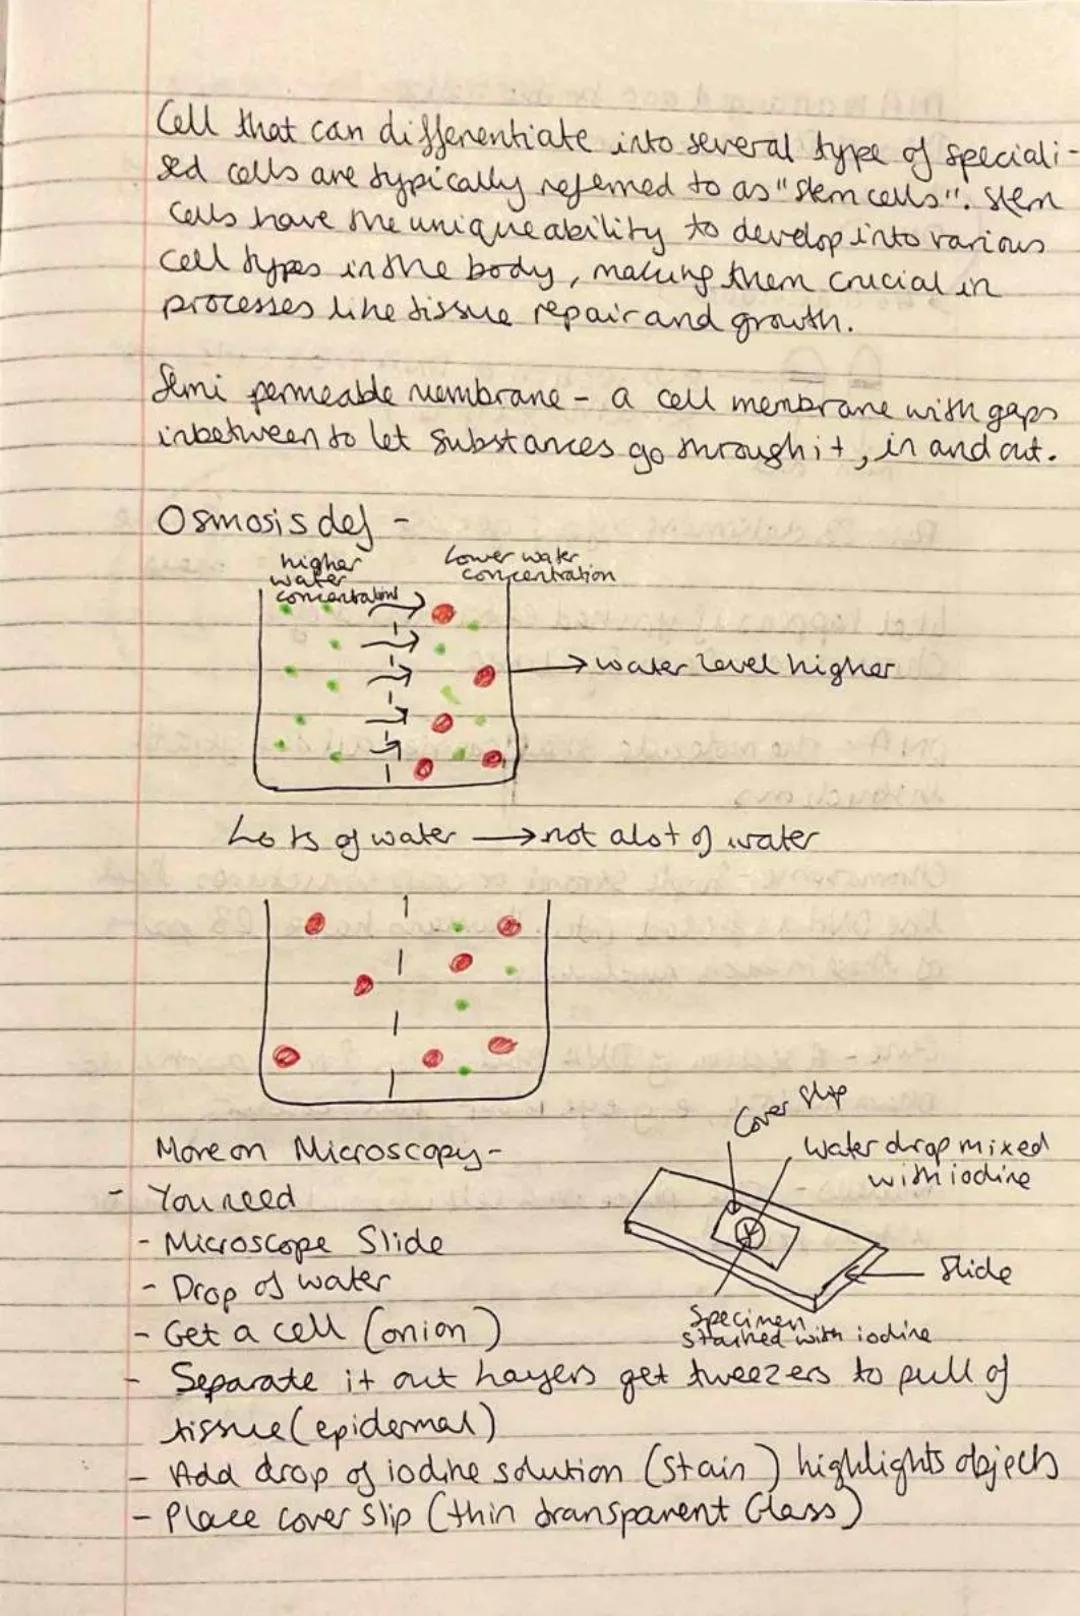 Cell that can differentiate into several type of speciali-
sed cells are typically referred to as "stem cells". Stem
cells have the unique ability to develop into various
cell types in the body, making them crucial in
processes like tissue repair and growth.
Semi permeable membrane - a cell membrane with gaps
inbetween to let substances go through it, in and out.
Osmosis def -
higher
water
concentration
Lower water
concentration
→ water level higher
Lots of water → not alot of water
More on Microscopy -
- You need
- Microscope Slide
- Drop of water
- Get a cell (onion)
- Separate it out layers get tweezers to pull of
tissue (epidermal)
- Add drop of iodine solution (stain) highlights objects
- Place cover slip (thin transparent Glass)
Cover slip
Water drop mixed
with iodine
Slide
Specimen
stained with iodine